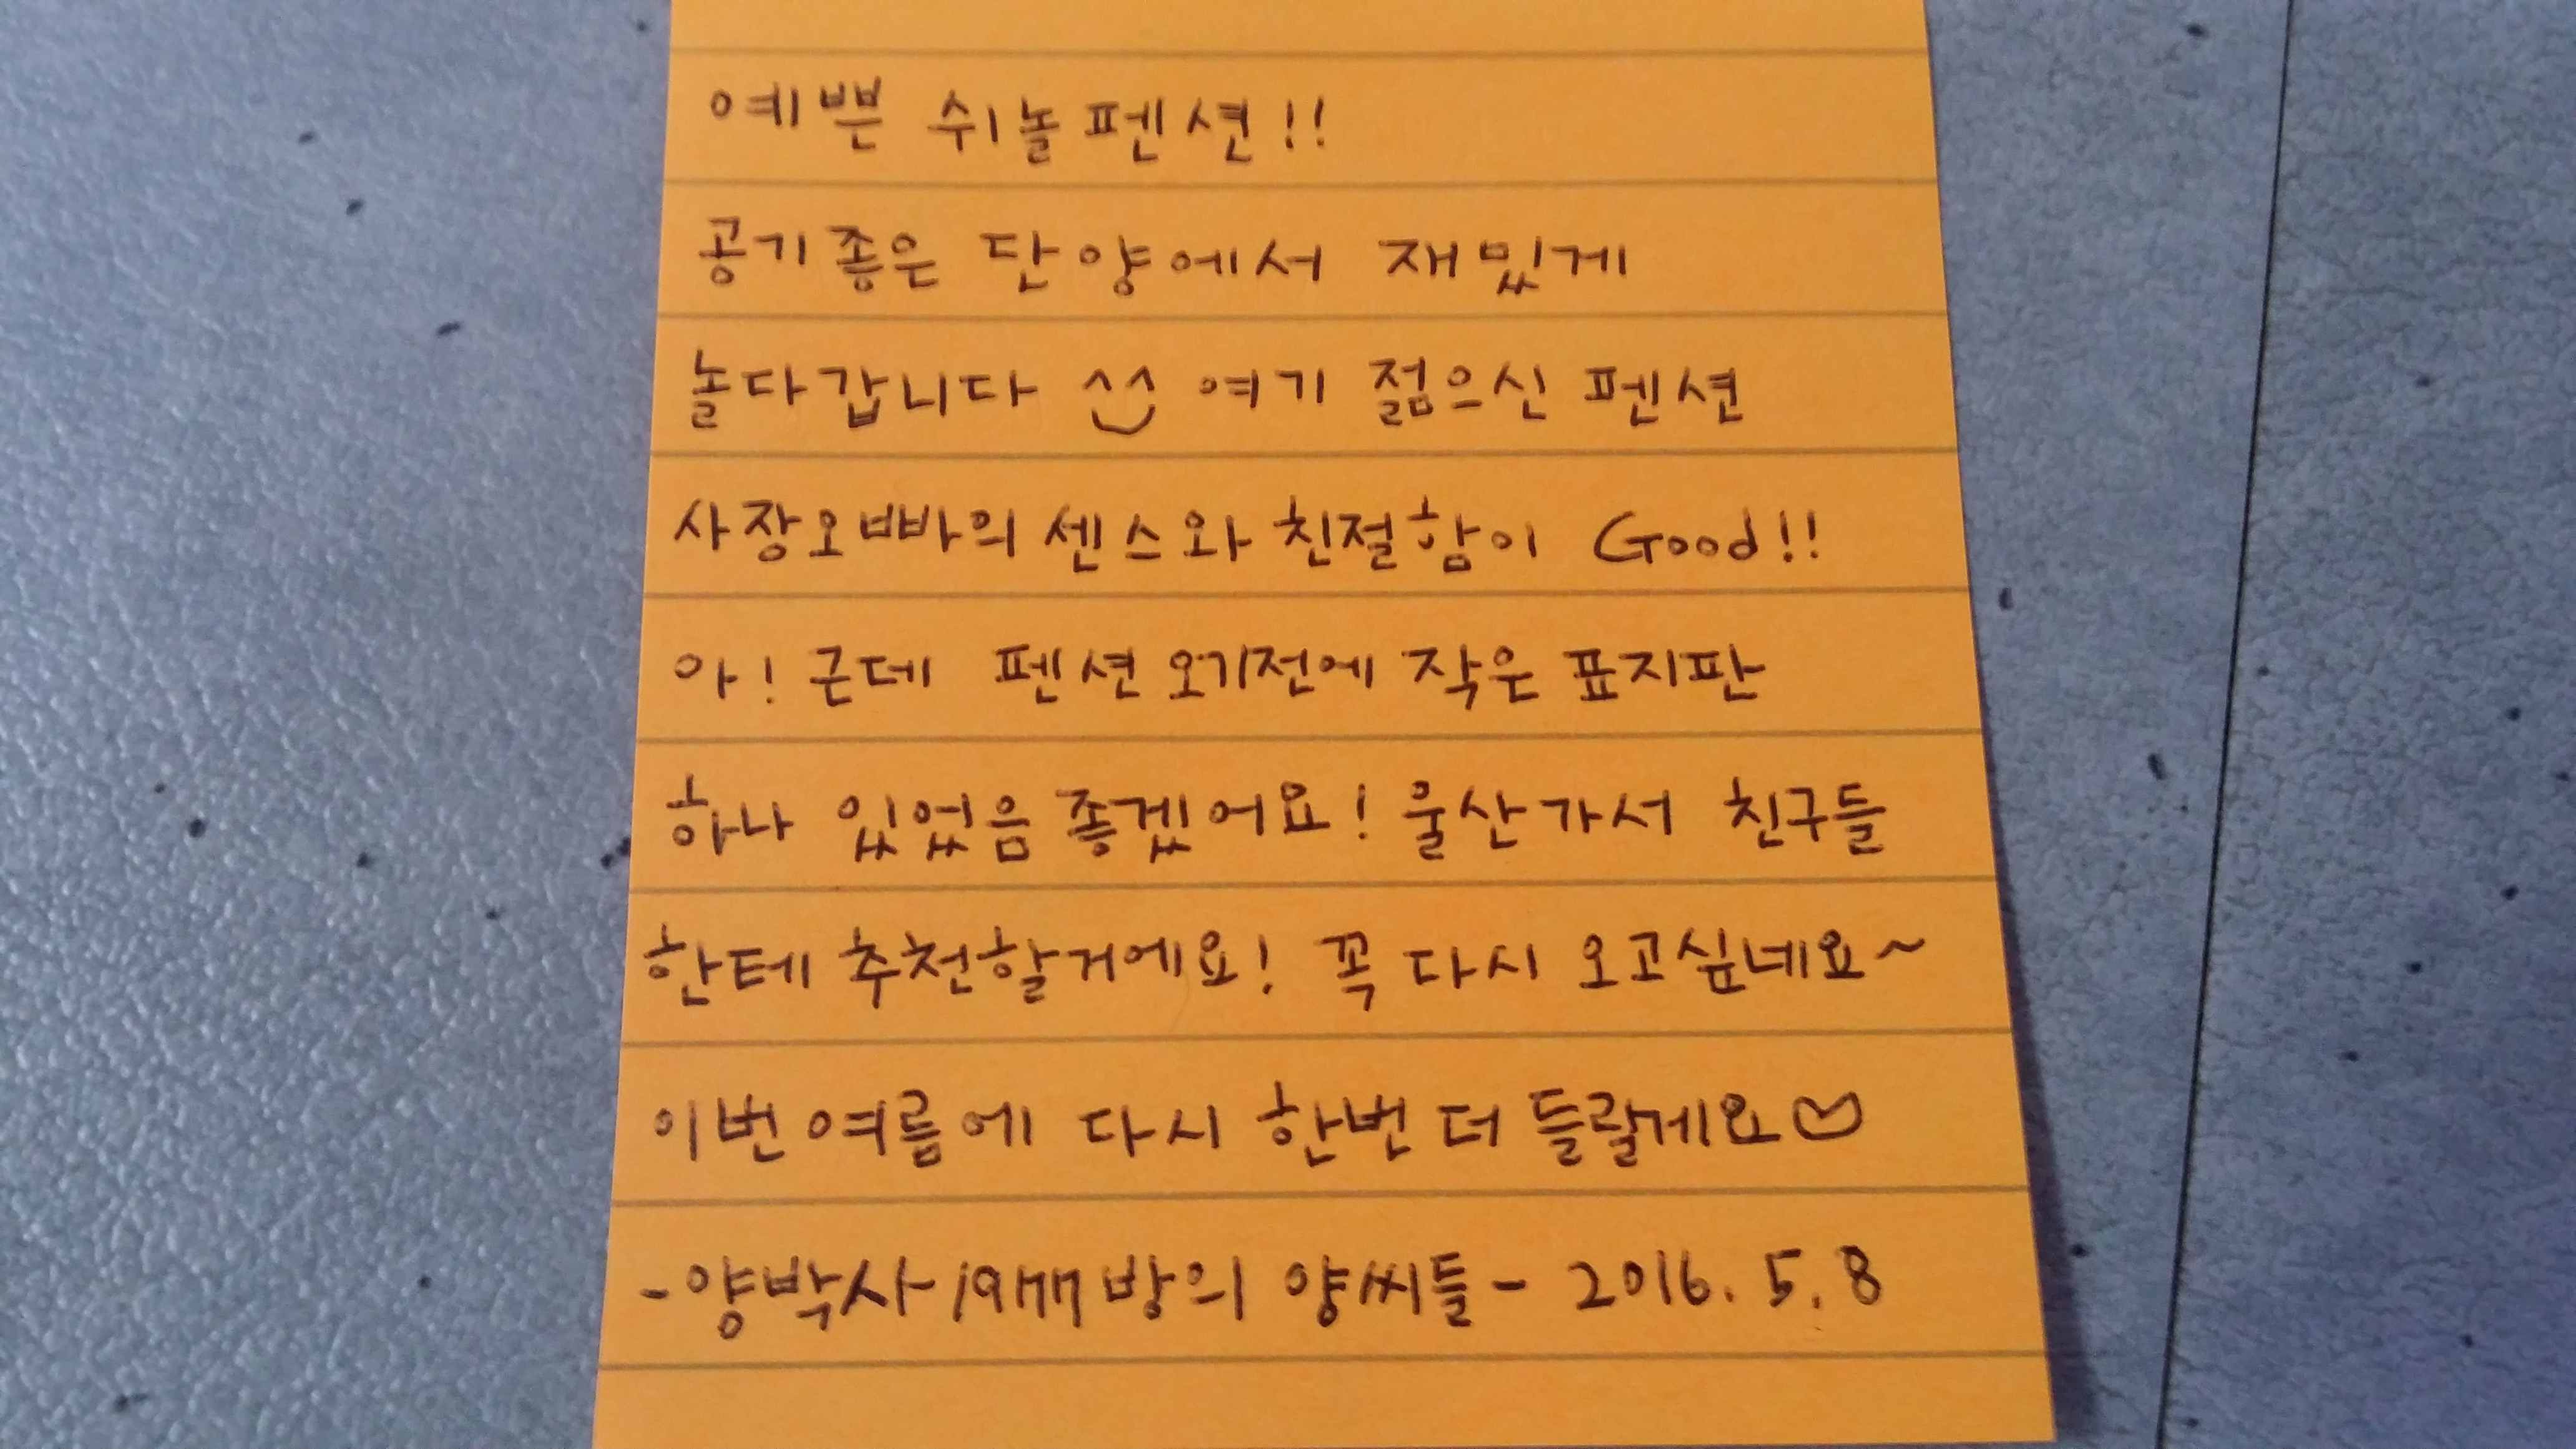 예쁜 쉬놀펜션!!
공기좋은 단양에서 재밌게
놀다갑니다 ^^ 여기 젊으신 펜션
사장오빠의 센스와 친절함이 Good!!
아! 근데 펜션 오기전에 작은 표지판
하나 있었음 좋겠어요! 울산가서 친구들
한테 추천할거에요! 꼭 다시 오고싶네요~
이번여름에 다시 한번 더 들랄게요♡
-양박사1977방의 양씨들- 2016. 5. 8